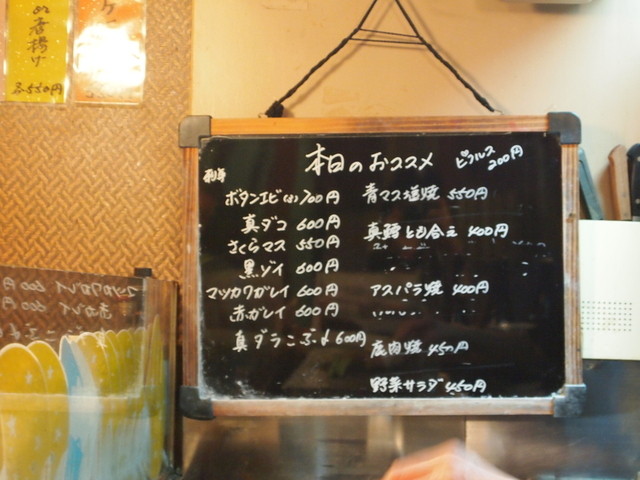 唐揚げ
550円
本日のおススメ
ピクルス
200円
刺身
ボタンエビ(3) 700円
真ダコ 600円
さくらマス 550円
黒ゾイ 600円
マツカワガレイ 600円
赤ガレイ 600円
真ダラこぶ〆 600円
青マス塩焼 550円
真鱈とも合え 400円
アスパラ焼 400円
鹿肉焼 450円
野菜サラダ 450円